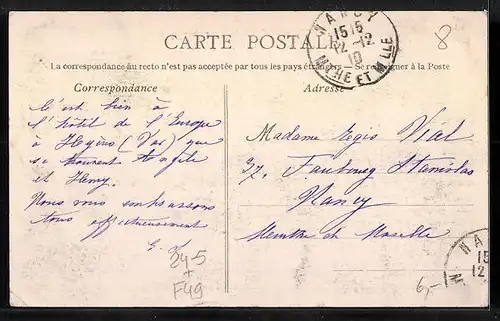 CARTE POSTALE
La correspondance au recto n'est pas acceptée par tous les pays étrangers. Se renseigner à la Poste
NANCY
15 15
12 -12
10
MTHE ET MLLE
8
Correspondance
C'est bien à
l'hôtel de l'Europe
à Hyères (Var) que
se trouvent Angèle
et Henry.
Nous vous embrassons
tous affectueusement
245
+
F49
Adresse
Madame Régis Vial
37, Faubourg Stanislas
Nancy
Meurthe et Moselle
NA
15
12
M
6,-